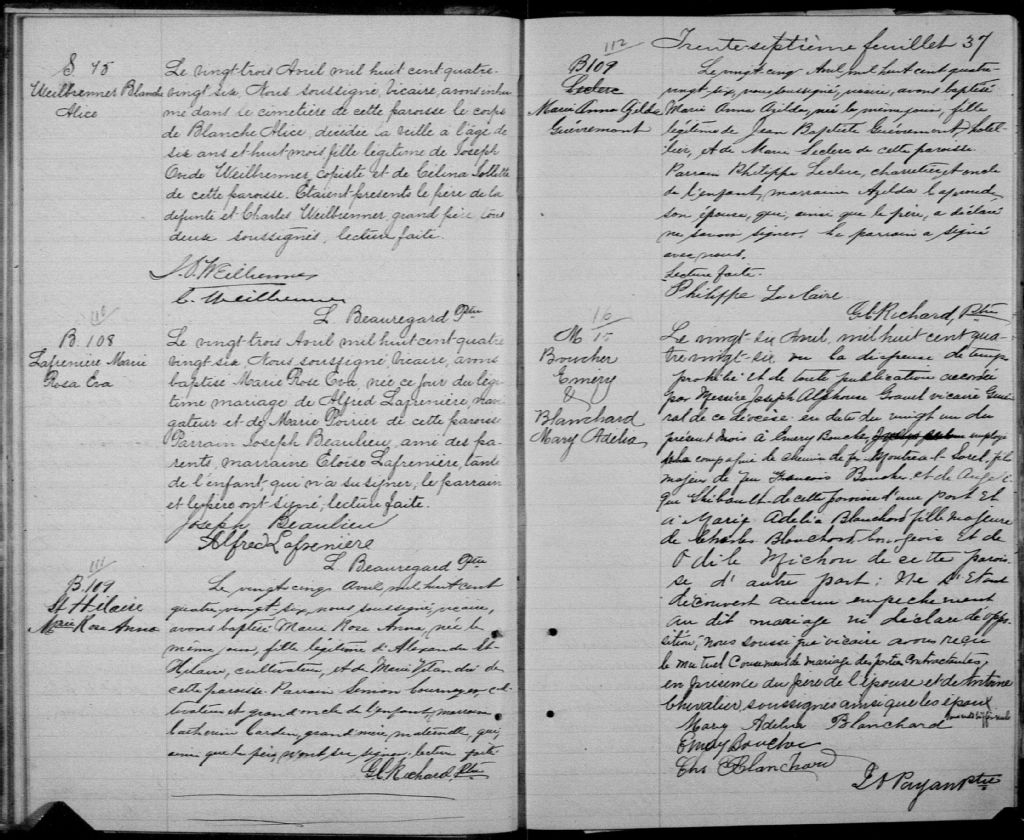 S 45
Weilbrenner Blanche
Alice
Le vingt-trois Avril mil huit cent quatre-
vingt six Nous soussigné, vicaire, avons inhu-
mé dans le cimetière de cette paroisse le corps
de Blanche Alice, décédée la veille à l'âge de
six ans et huit mois, fille légitime de Joseph
Onde Weilbrenner, copiste et de Célina
de cette paroisse. Etaient présents le père de la
défunte et Charles Weilbrenner, grand père tous
deux soussignés, lecture faite.
J. O. Weilbrenner
C. Weilbrenner
L Beauregard Ptre
110
B. 108
Lafrenière Marie
Rosa Eva
Le vingt-trois Avril mil huit cent quatre
vingt six Nous soussigné vicaire, avons
baptisé Marie Rose Eva, née ce jour du légi-
time mariage de Alfred Lafrenière, navi-
gateur et de Marie Poirier de cette paroisse
Parrain Joseph Beaulieu, ami des pa-
rents, marraine Eloïse Lafrenière, tante
de l'enfant, qui n'a su signer; le parrain
et le père ont signé, lecture faite.
Joseph Beaulieu
Alfred Lafrenière
L Beauregard Ptre
111
B. 109
St Hilaire
Marie Rose Anna
Le vingt cinq Avril mil huit cent
quatre-vingt six, nous soussigné, vicaire,
avons baptisé Marie Rose Anna, née le
même jour, fille légitime d'Alexandre St-
Hilaire, cultivateur, et de Marie de
cette paroisse. Parrain Simon Cournoyer cul-
tivateur et grand oncle de l'enfant, marraine
Catherine Cardin, grand mère, maternelle, qui,
ainsi que le père, n'ont su signer. lecture faite
G L Richard Ptre
Trente-septième feuillet 37
112
B109
Leclerc
Marie Anna Azilda
Guèvremont
Le vingt cinq Avril mil huit cent quatre
vingt six, nous soussigné, vicaire, avons baptisé
Marie Anna Azilda, née le même jour, fille
légitime de Jean Baptiste Guèvremont, hotel-
lier, et de Marie Leclerc de cette paroisse.
Parrain Philippe Leclerc, charretier, et oncle
de l'enfant, marraine Azilda
son épouse, qui, ainsi que le père, a déclaré
ne savoir signer. Le parrain a signé
avec nous.
Lecture faite.
Philippe Le Claire.
G L Richard, Ptre
16
M 15
Boucher
Emery
&
Blanchard
Mary Adelia
Le vingt-six Avril, mil huit cent qua-
tre vingt-six vu la dispense de temps
prohibé et de toute publication accordée
par Messire Joseph Alphonse Gravel vicaire Géné-
ral de ce diocèse en date du vingt un du
présent mois à Emery Boucher employé
compagnie le chemin de fer Montreal & Sorel, fils
majeur de feu François Boucher et de Angéli-
que Thibault de cette paroisse d'une part et
à Marie Adelia Blanchard fille majeure
de Charles Blanchard bourgeois et de
Odile Michon de cette parois-
se d'autre part: Ne s'étant
découvert aucun empechement
au dit mariage ni déclaré d'oppo-
sition, nous soussigné vicaire avons reçu
le mutuel consement de mariage des parties contractantes,
en présence du père de l'épouse et de Antoine
Chevalier, soussignés ainsi que les époux
Mary Adelia Blanchard
Emery Boucher
Chs Blanchard
J A Payan Ptre